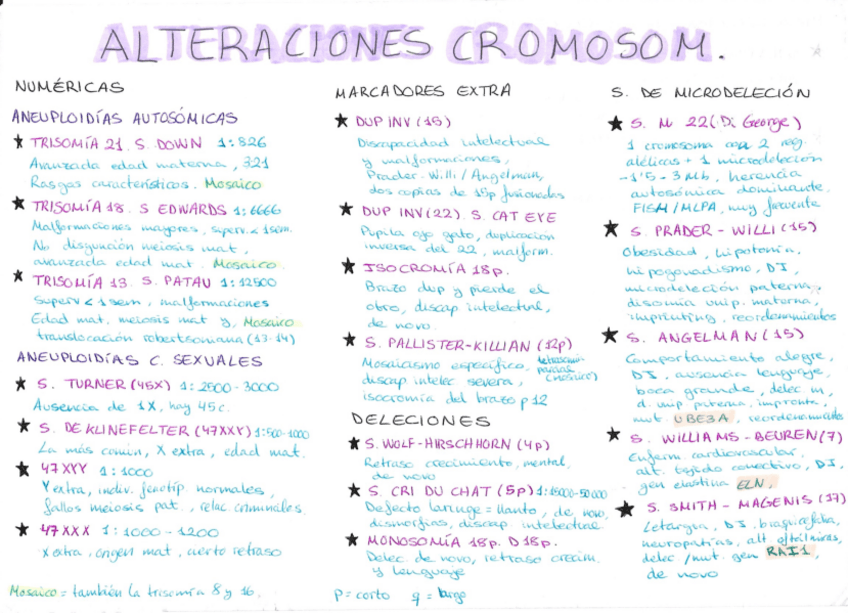 ALTERACIONES CROMOSOM.
NUMÉRICAS
ANEUPLOIDÍAS AUTOSÓMICAS
★ TRISOMÍA 21. S. DOWN 1:826
Avanzada edad materna, 321
Rasgos característicos. Mosaico
★ TRISOMÍA 18. S EDWARDS 1:6666
Malformaciones mayores, superv. < 1 sem.
No disyunción meiosis mat,
avanzada edad mat. Mosaico.
★ TRISOMÍA 13. S. PATAU 1:12500
Superv < 1 sem, malformaciones
Edad mat, meiosis mat y, Mosaico
translocación robertsoniana (13-14)
ANEUPLOIDÍAS C. SEXUALES
★ S. TURNER (45X) 1:2500-3000
Ausencia de 1X, hay 45c.
★ S. DE KLINEFELTER (47XXY) 1:500-1000
La más común, X extra, edad mat.
★ 47XYY 1:1000
Y extra, indiv. fenotíp. normales,
fallos meiosis pat., relac criminales.
★ 47XXX 1:1000-1200
X extra, origen mat, cierto retraso
Mosaico = también la trisomía 8 y 16.
MARCADORES EXTRA
★ DUP INV (15)
Discapacidad intelectual
y malformaciones,
Prader-Willi / Angelman,
dos copias de 15p fusionadas
★ DUP INV (22). S. CAT EYE
Pupila ojo gato, duplicación
inversa del 22, malform.
★ ISOCROMÍA 18p.
Brazo dup y pierde el
otro, discap intelectual,
de novo.
★ S. PALLISTER-KILLIAN (12p)
Mosaicismo específico, tetrasomía parcial (mosaico)
discap intelec severa,
isocromía del brazo p 12
DELECIONES
★ S. WOLF-HIRSCHHORN (4p)
Retraso crecimiento, mental,
de novo
★ S. CRI DU CHAT (5p) 1:15000-50000
Defecto laringe = llanto, de novo,
dismorfias, discap intelectual
★ MONOSOMÍA 18p. D18p.
Delec. de novo, retraso crecim.
y lenguaje
p = corto q = largo
S. DE MICRODELECIÓN
★ S. M 22 (Di George)
1 cromosoma con 2 reg.
alélicas + 1 microdeleción
~1'5-3 Mb, herencia
autosómica dominante.
FISH/MLPA, muy frecuente
★ S. PRADER-WILLI (15)
Obesidad, hipotonía,
hipogonadismo, DI,
microdeleción paterna,
disomía unip. materna,
imprinting, reordenamientos
★ S. ANGELMAN (15)
Comportamiento alegre,
DI, ausencia lenguaje,
boca grande, delec m,
d. unip paterna, impronta,
mut. UBE3A, reordenamiento
★ S. WILLIAMS-BEUREN (7)
Enferm. cardiovascular,
alt. tejido conectivo, DI,
gen elastina ELN.
★ S. SMITH-MAGENIS (17)
Letargia, DI, braquicefalia,
neuropatías, alt.
delec/mut. gen RAI1,
de novo